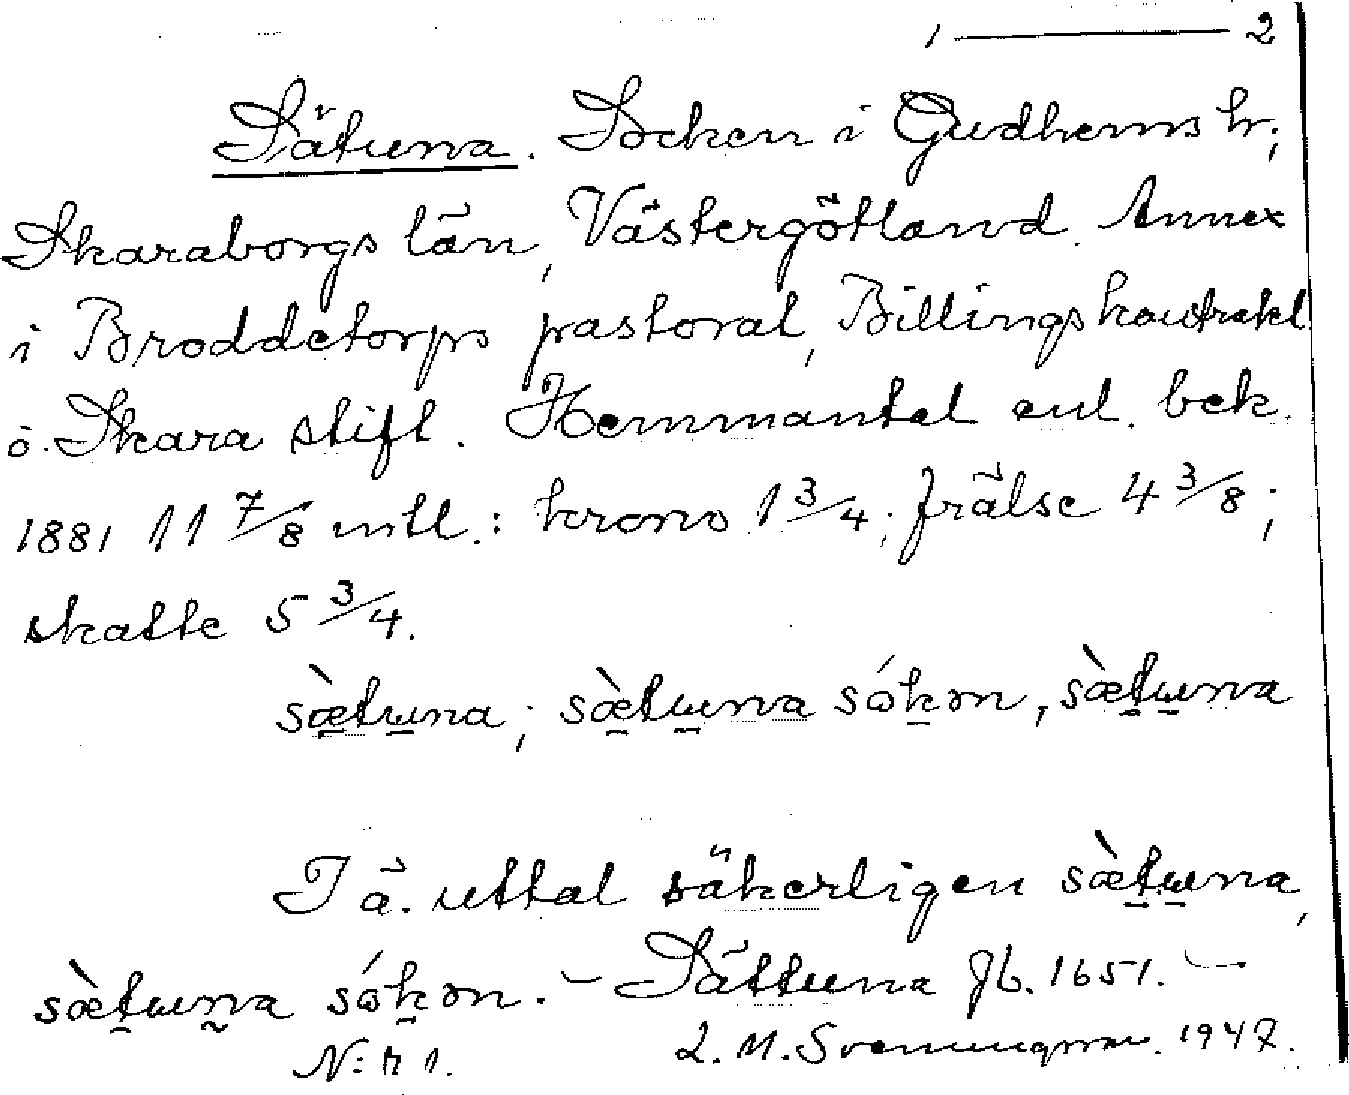 1 — 2
Sätuna. Socken i Gudhems h.;
Skaraborgs län, Västergötland. Annex
i Broddetorps pastorat, Billings kontrakt
o. Skara stift. Hemmantal enl. bek.
1881 11 7/8 mtl.: krono 1 3/4; frälse 4 3/8;
skatte 5 3/4.
sæ̀tɯna; sæ̀tɯna sókən, sæ̀tɯna
I ä. uttal säkerligen sæ̀tɯna,
sæ̀tɯna sókən. – Sättuna Jb. 1651. –
N:r 1. L. M. Svenungsson. 1947.